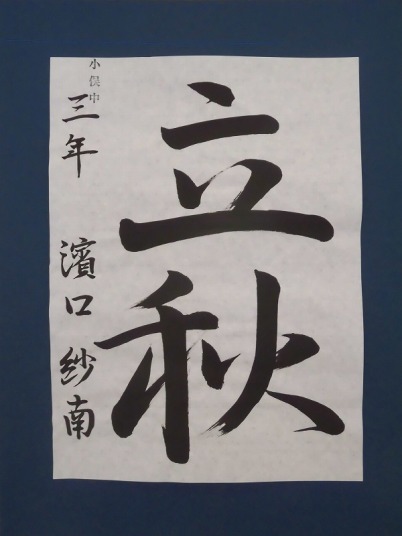 立秋
小俣中
三年 濱口 紗南